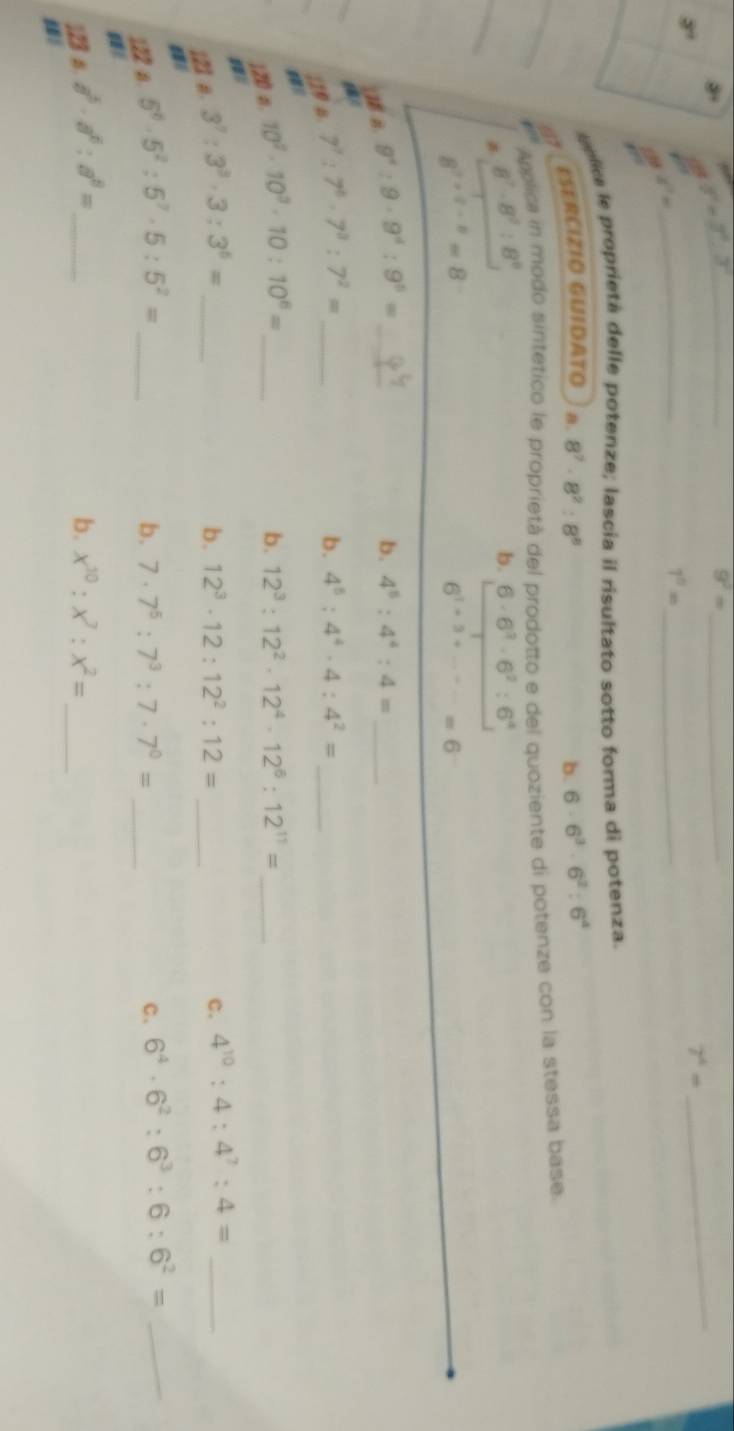 9² =
7⁴ =
4³ =
1⁰ =
le proprietà delle potenze; lascia il risultato sotto forma di potenza.
117 ESERCIZIO GUIDATO a. 8⁷ · 8² : 8⁶ b. 6 · 6³ · 6² : 6⁴
Applica in modo sintetico le proprietà del prodotto e del quoziente di potenze con la stessa base.
a. 8⁷ · 8² : 8⁶ b. 6 · 6³ · 6² : 6⁴
8⁷ ⁺ ² ⁻ ⁶ = 8 6¹ ⁺ ³ ⁺ ... ⁻ ... = 6
118 a. 9⁴ : 9 · 9⁴ : 9⁶ = b. 4⁸ : 4⁴ : 4 =
119 a. 7⁷ : 7⁶ · 7³ : 7² = b. 4⁵ : 4⁴ · 4 : 4² =
120 a. 10² · 10³ · 10 : 10⁶ = b. 12³ : 12² · 12⁴ · 12⁶ : 12¹¹ =
121 a. 3⁷ : 3³ · 3 : 3⁵ = b. 12³ · 12 : 12² : 12 = c. 4¹⁰ : 4 : 4⁷ : 4 =
122 a. 5⁶ · 5² : 5⁷ · 5 : 5² = b. 7 · 7⁵ : 7³ : 7 · 7⁰ = c. 6⁴ · 6² : 6³ : 6 : 6² =
123 a. a⁵ · a⁶ : a⁸ = b. x¹⁰ : x⁷ : x² =